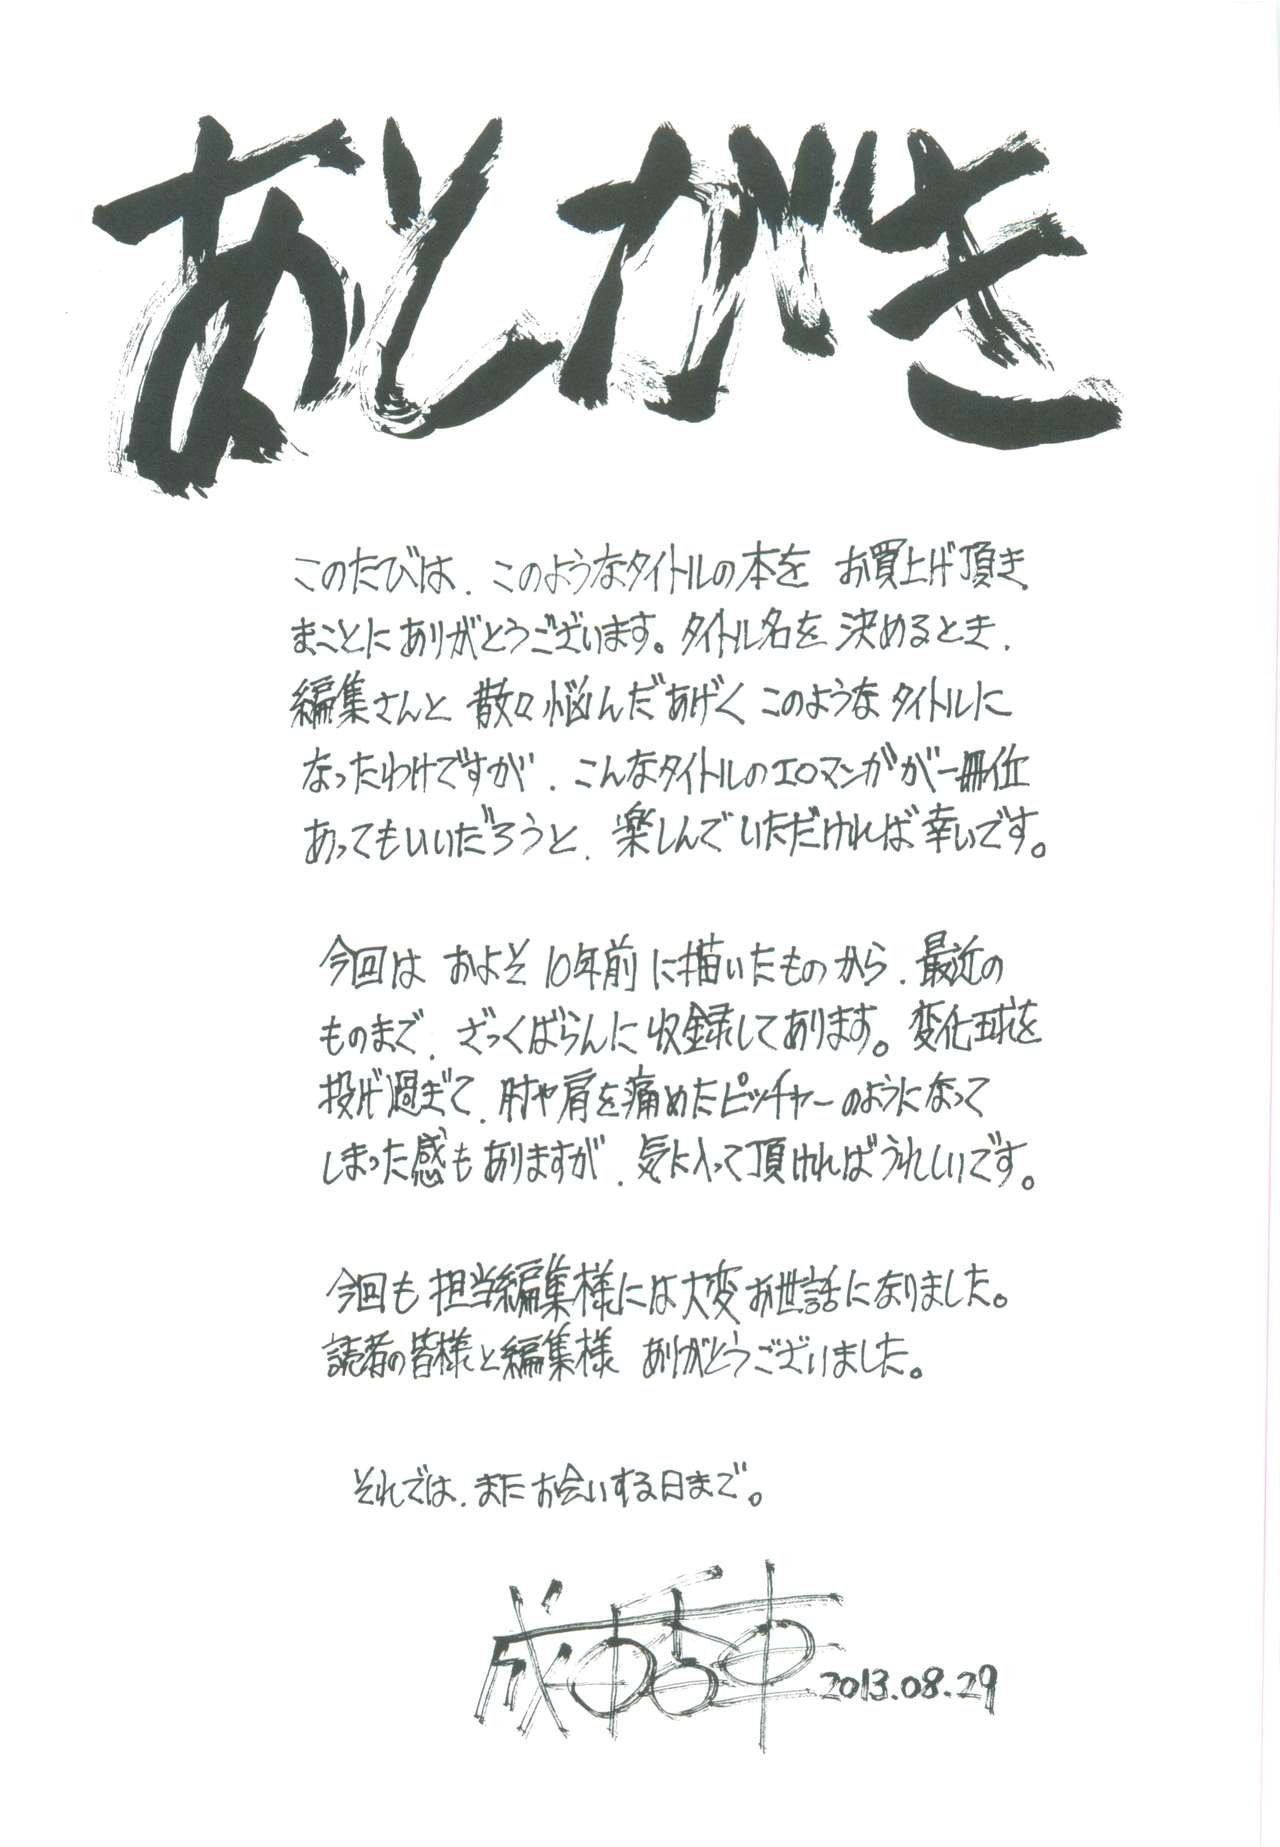 あとがき
このたびは、このようなタイトルの本を お買上げ頂き、
まことにありがとうございます。タイトル名を 決めるとき、
編集さんと 散々悩んだあげく このようなタイトルに
なったわけですが、こんなタイトルのエロマンガが一冊位
あってもいいだろうと、楽しんでいただければ幸いです。
今回は およそ10年前に描いたものから、最近の
ものまで、ざっくばらんに収録してあります。変化球を
投げ過ぎて、肘や肩を痛めたピッチャーのようになって
しまった感もありますが、気に入って頂ければうれしいです。
今回も担当編集様には大変お世話になりました。
読者の皆様と編集様 ありがとうございました。
それでは、またお会いする日まで。
2013.08.29